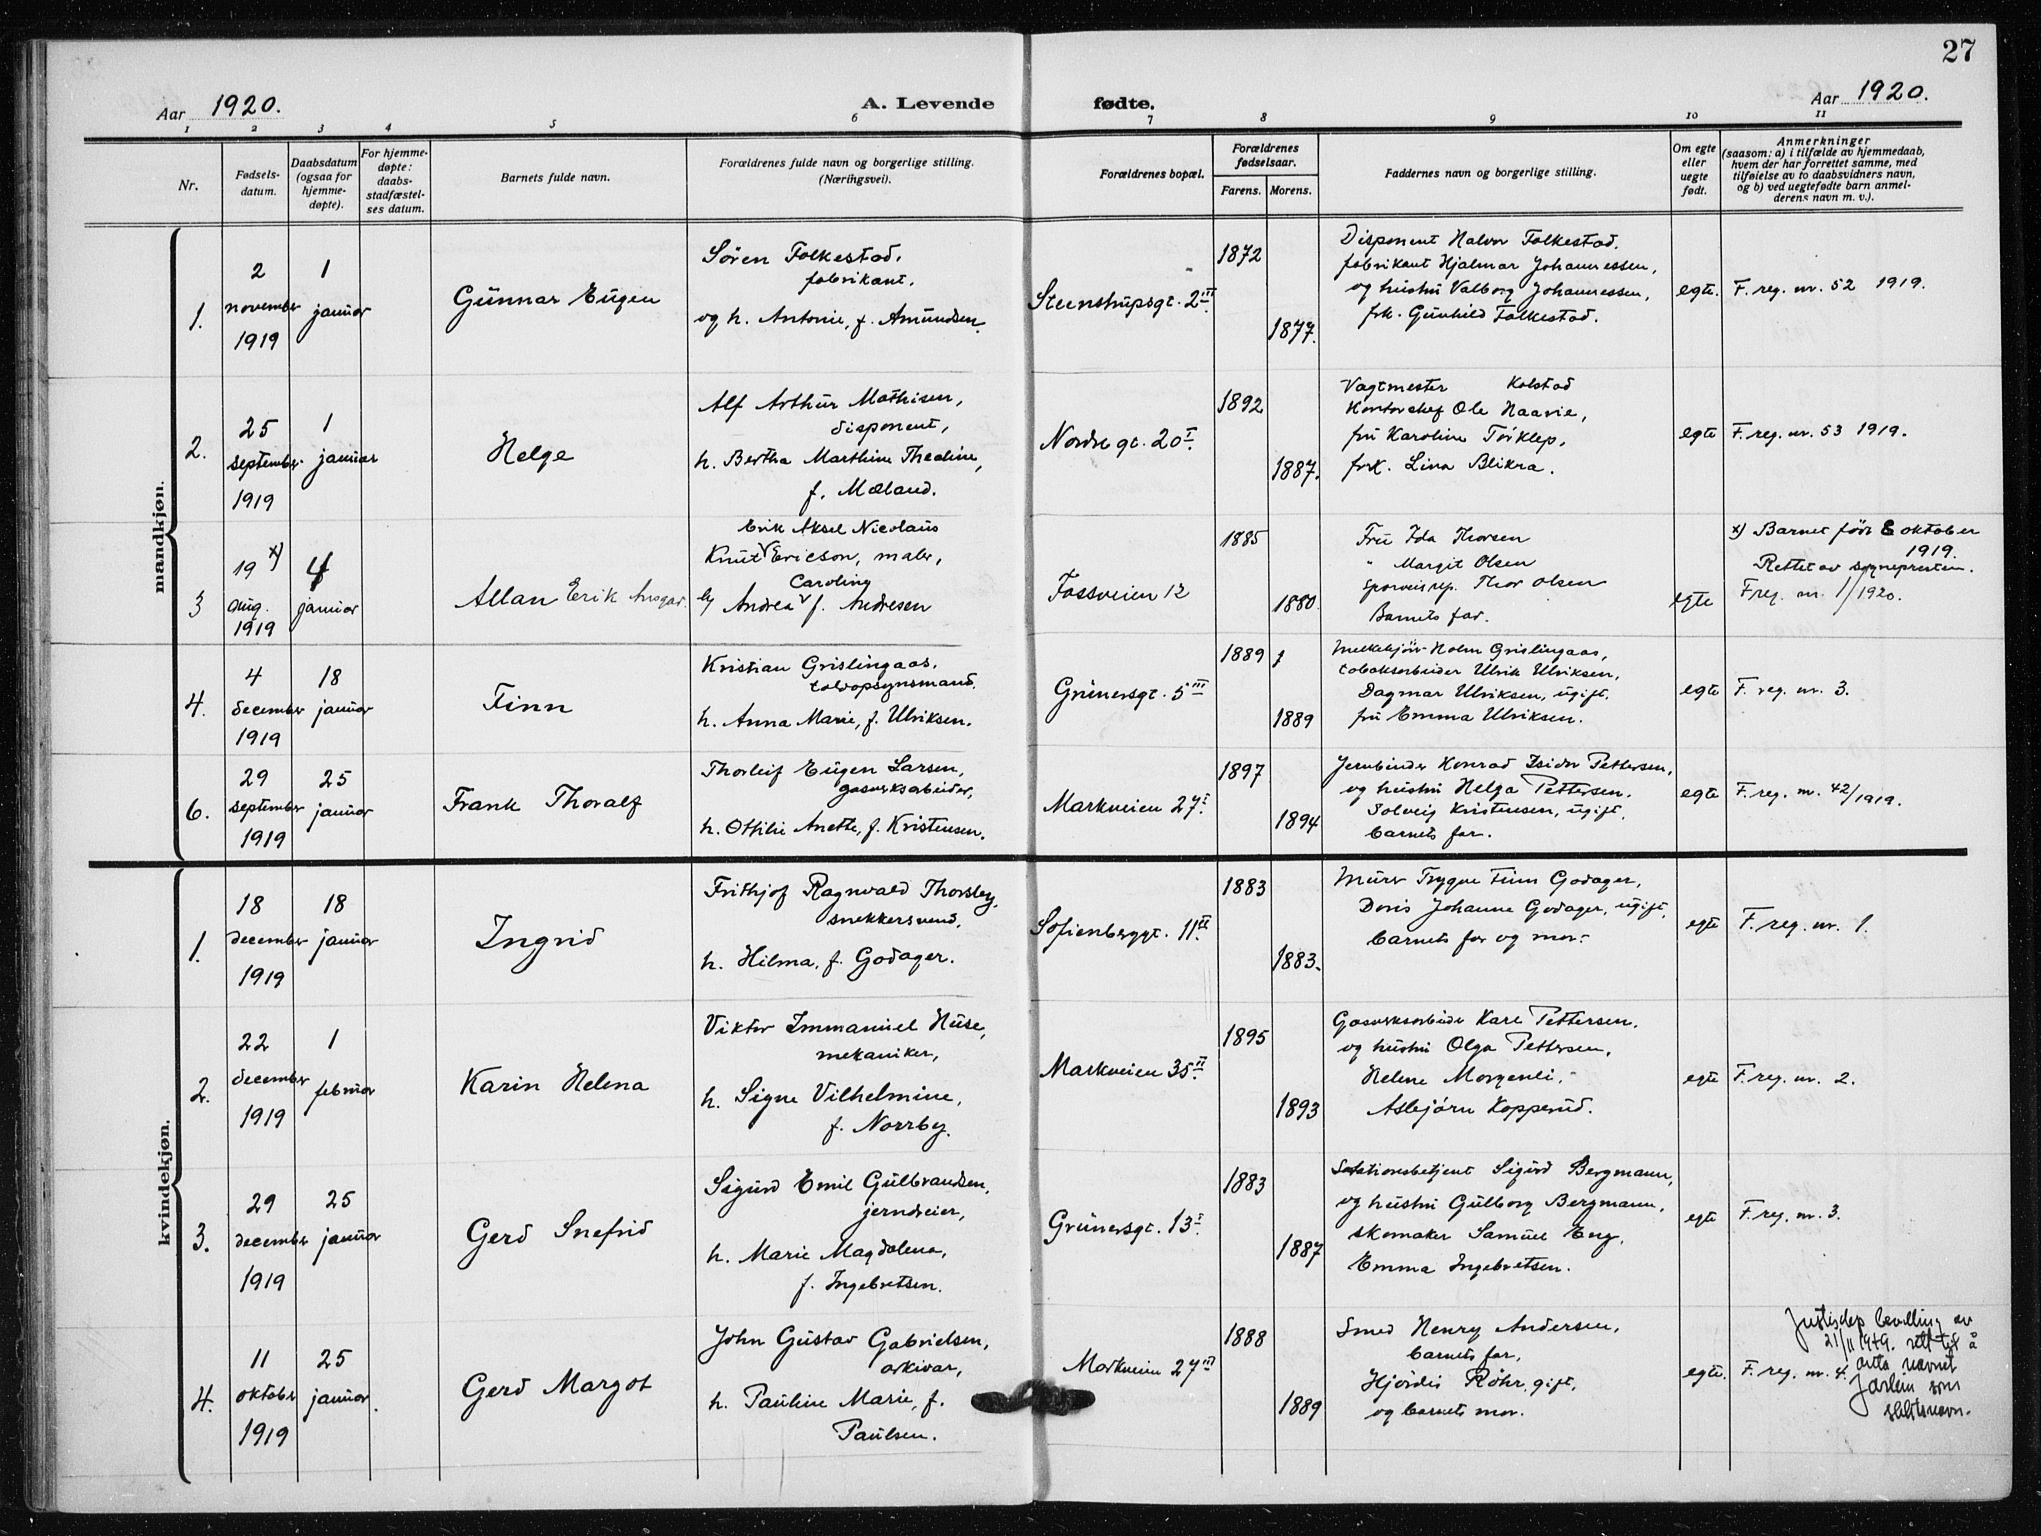 27
Aar 1920.
A. Levende
fødte.
Aar 1920.
1 2 3 4 5 6 7 8 9 10 11
Nr.
Fødsels-
datum.
Daabsdatum
(ogsaa for
hjemme-
døpte).
For hjemme-
døpte:
daabs-
stadfæstel-
ses datum.
Barnets fulde navn.
Forældrenes fulde navn og borgerlige stilling.
(Næringsvei).
Forældrenes bopæl.
Forældrenes
fødselsaar.
Farens. Morens.
Faddernes navn og borgerlige stilling.
Om egte
eller
uegte
født.
Anmerkninger
(saasom: a) i tilfælde av hjemmedaab,
hvem der har forrettet samme, med
tilføielse av to daabsvidners navn,
og b) ved uegtefødte barn anmel-
derens navn m. v.).
mandkjøn.
1.
2
november
1919
1
januar
Gunnar Eugen
Søren Folkestad,
fabrikant.
og h. Antonie, f. Amundsen.
Steenstrupsgt. 2 III
1872
1877.
Disponent Halvor Folkestad.
fabrikant Hjalmar Johannessen,
og hustru Valborg Johannessen,
frk. Gunhild Folkestad.
egte.
F. reg. nr. 52 1919.
2.
25
september
1919
1
januar
Helge
Alf Arthur Mathisen,
disponent,
h. Bertha Marthine Theoline,
f. Mæland.
Nordregt. 20 I
1892
1887.
Vagtmester Kolstad
Kontorchef Ole Haavie,
fru Karoline Torklep,
frk. Lina Blikra.
egte
F. reg. nr. 53 1919.
3
19 x)
aug.
1919
4
januar
Allan Erik Ansgar.
Erik Aksel Nicolaus
Knut Ericson, maler,
Caroline
Andrea f. Andresen
Fossveien 12
1885
1880.
Fru Ida Thorsen
" Margit Olsen
Thor Olsen
Barnets far.
egte
x) Barnet født 8 oktober
1919.
Rettet av sognepresten.
F reg. nr. 1/1920.
4.
4
december
1919
18
januar
Finn
Kristian Grislingaas,
toldopsynsmand.
h. Anna Marie, f. Ulriksen.
Grünersgt. 5 III
1889
1889
Holm Grislingaas,
tobaksarbeider Ulrik Ulriksen,
Dagmar Ulriksen, ugift,
fru Emma Ulriksen.
egte
F. reg. nr. 3.
6.
29
september
1919
25
januar
Frank Thoralf
Thorleif Eugen Larsen,
gasverksarbeider,
h. Othilie Anette, f. Kristensen.
Markveien 27 I
1897
1894
Jernbinder Konrad Isidor Pettersen,
og hustru Helga Pettersen.
Solveig Kristensen, ugift,
barnets far.
egte
F. reg. nr. 42/1919.
kvindekjøn.
1.
18
december
1919
18
januar
Ingrid
Frithjof Ragnvald Thorsby,
snekkersvend,
h. Hilma, f. Godager.
Sofienberggt. 11 II
1883
1883.
Murer Trygve Finn Godager,
Doris Johanne Godager, ugift,
barnets far og mor.
egte
F. reg. nr. 1.
2.
22
december
1919
1
februar
Karin Helena
Viktor Immanuel Huse,
mekaniker,
h. Signe Vilhelmine,
f. Norrby.
Markveien 35 II
1895
1893
Gasverksarbeider Kare Pettersen,
og hustru Olga Pettersen,
Helene Morgenli,
Asbjørn Kopperud.
egte
F. reg. nr. 2.
3.
29
december
1919
25
januar
Gerd Snefrid
Sigurd Emil Gulbrandsen,
jerndreier,
h. Marie Magdalena,
f. Ingebretsen.
Grünersgt. 13 I
1883
1887
Stationsbetjent Sigurd Bergmann,
og hustru Gulborg Bergmann,
skomaker Samuel Eng,
Emma Ingebretsen.
egte
F. reg. nr. 3.
4.
11
oktober
1919
25
januar.
Gerd Margot
John Gustav Gabrielsen,
arkivar,
h. Pauline Marie, f.
Paulsen.
Markveien 27 III
1888
1889
Smed Henry Andersen,
barnets far,
Hjørdis Røhr, gift,
og barnets mor.
egte.
F. reg. nr. 4.
Justisdep bevilling av
21/11 1949. rett til å
anta navnet
Jarlein som
slektsnavn.